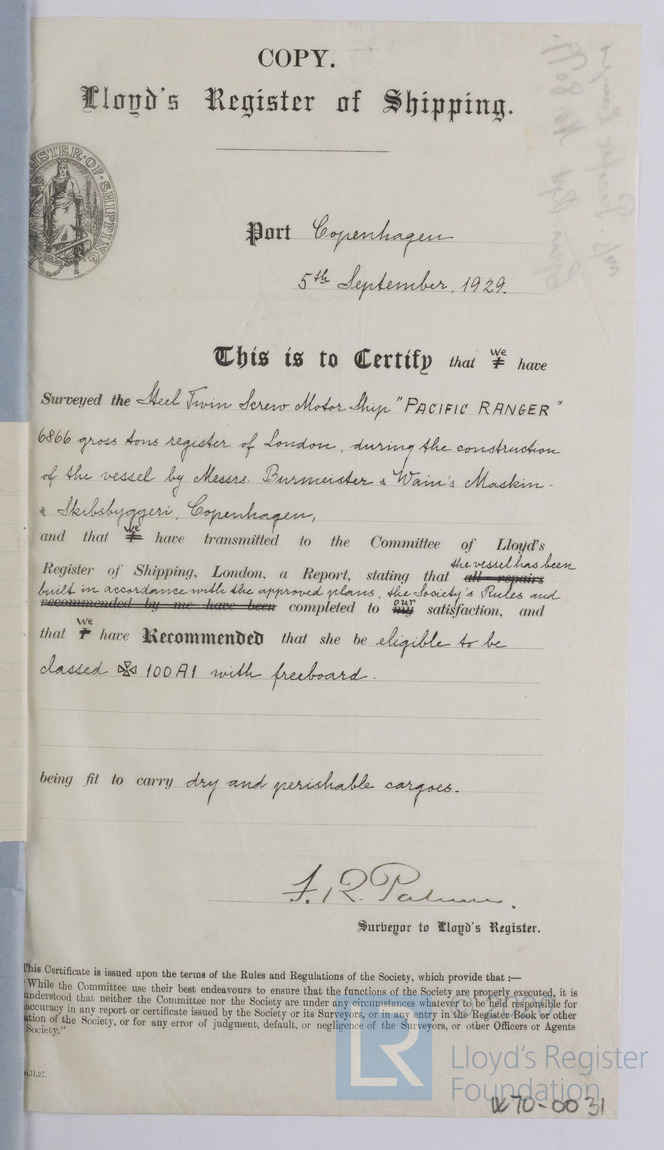 COPY.
Lloyd's Register of Shipping.
Port Copenhagen
5th September, 1929.
This is to Certify that we I have
Surveyed the Steel Twin Screw Motor Ship "PACIFIC RANGER"
6866 gross tons register of London, during the construction
of the vessel by Messrs. Burmeister & Wain's Maskin-
& Skibsbyggeri, Copenhagen,
and that we I have transmitted to the Committee of Lloyd's
Register of Shipping, London, a Report, stating that all repairs the vessel has been
built in accordance with the approved plans, the Society's Rules and
recommended by me have been completed to my our satisfaction, and
that we I have Recommended that she be eligible to be
classed ✠ 100A1 with freeboard.
being fit to carry dry and perishable cargoes.
F. R. Palmer.
Surveyor to Lloyd's Register.
This Certificate is issued upon the terms of the Rules and Regulations of the Society, which provide that :—
"While the Committee use their best endeavours to ensure that the functions of the Society are properly executed, it is
understood that neither the Committee nor the Society are under any circumstances whatever to be held responsible for
accuracy in any report or certificate issued by the Society or its Surveyors, or in any entry in the Register Book or other
ation of the Society, or for any error of judgment, default, or negligence of the Surveyors, or other Officers or Agents
Society."
11.27.
LR
Lloyd's Register
Foundation
W70-0031